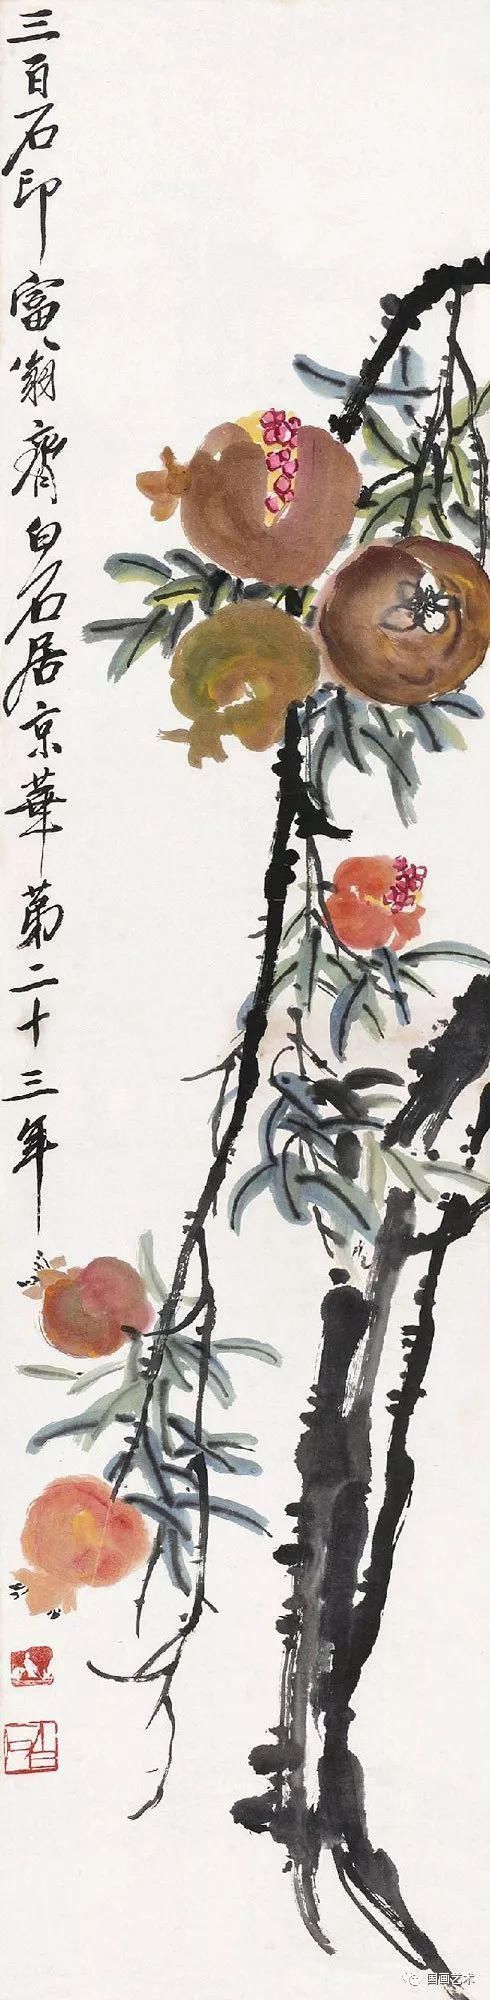 三百石印富翁齊白石居京華第二十三年
白石
国画艺术